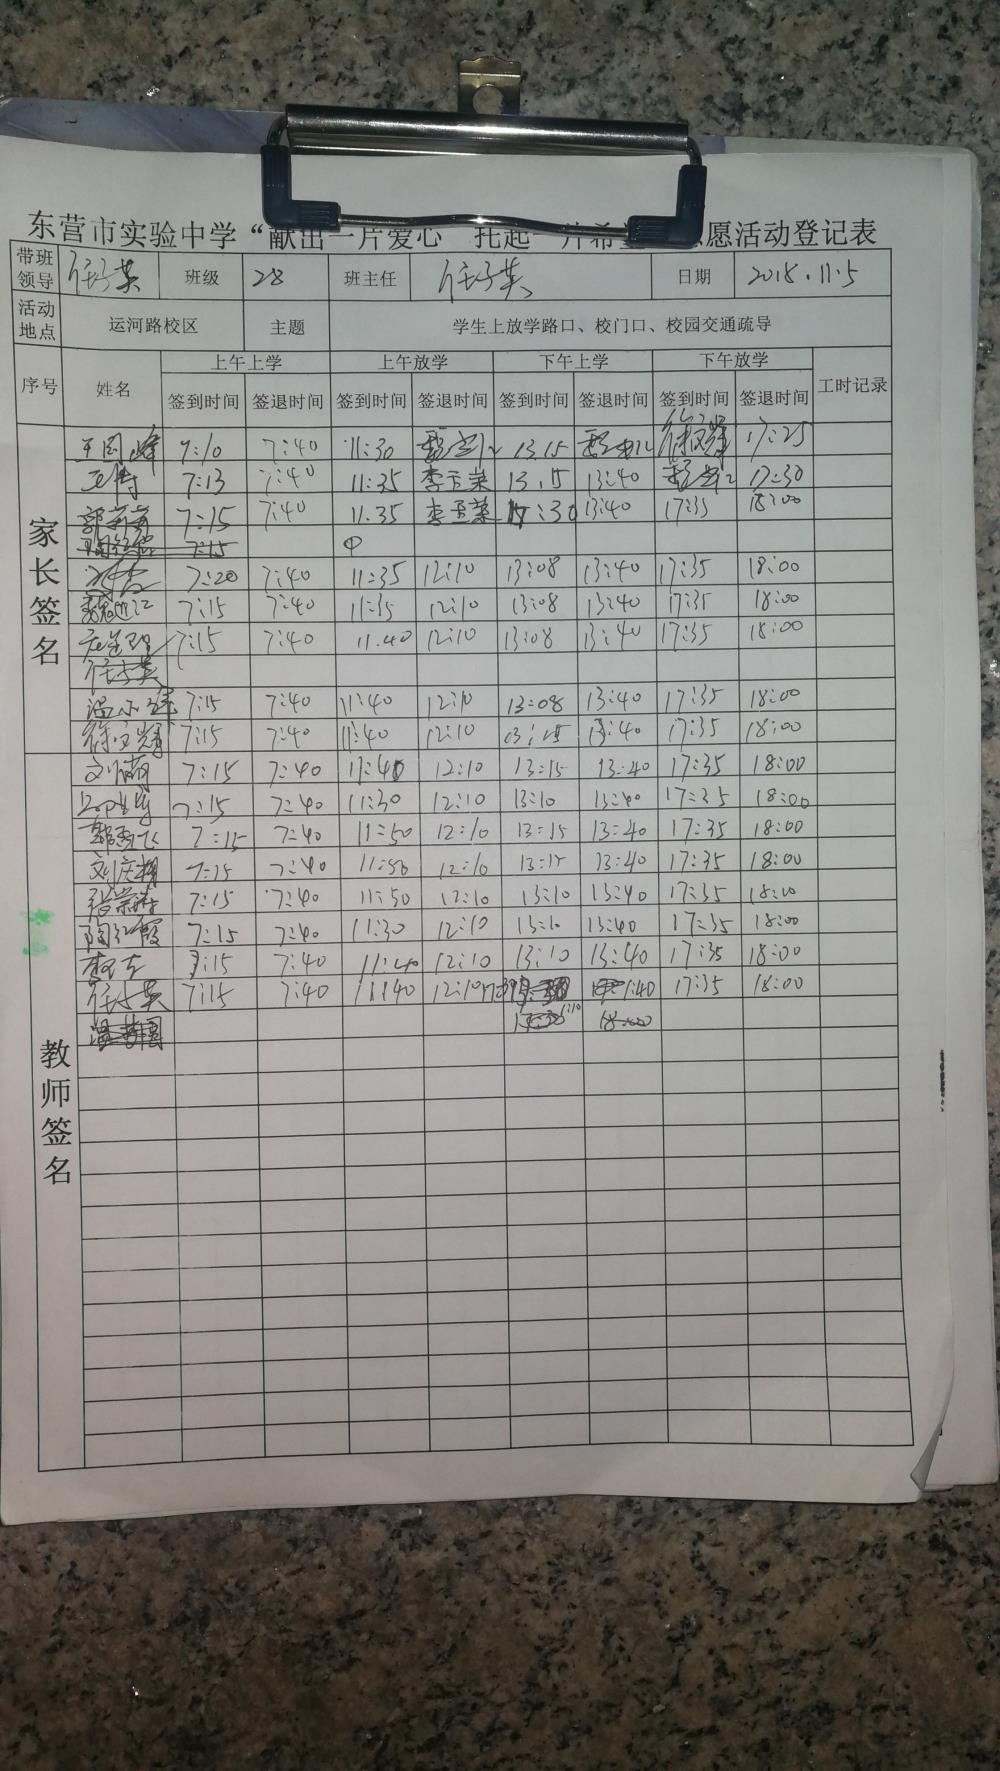 东营市实验中学“献出一片爱心 托起一片希望 志愿活动登记表
带班领导 任子英 班级 28 班主任 任子英 日期 2018.11.5
活动地点 运河路校区 主题 学生上放学路口、校门口、校园交通疏导
序号 姓名 上午上学 上午放学 下午上学 下午放学 工时记录
签到时间 签退时间 签到时间 签退时间 签到时间 签退时间 签到时间 签退时间
家长签名
王国峰 7:10 7:40 11:30 13.15 徐文辉 17:25
王伟 7:13 7:40 11:35 李玉荣 13.15 13:40 17:30
郭莉莉 7:15 7:40 11.35 李玉荣 13:40 17:35 18:00
7:15
7:20 7:40 11:35 12:10 13:08 13:40 17:35 18:00
7:15 7:40 11:35 12:10 13:08 13:40 17:35 18:00
7:15 7:40 11.40 12:10 13:08 13:40 17:35 18:00
任子英
7:15 7:40 11:40 12:10 13:08 13:40 17:35 18:00
徐文辉 7:15 7:40 11:40 12:10 13:15 13:40 17:35 18:00
教师签名
刘萌 7:15 7:40 11:40 12:10 13:15 13:40 17:35 18:00
7:15 7:40 11:30 12:10 13:10 13:40 17:35 18:00
7:15 7:40 11:50 12:10 13:15 13:40 17:35 18:00
7:15 7:40 11:50 12:10 13:15 13:40 17:35 18:00
7:15 7:40 11:50 12:10 13:10 13:40 17:35 18:00
陶红霞 7:15 7:40 11:30 12:10 13:10 13:40 17:35 18:00
7:15 7:40 11:40 12:10 13:10 13:40 17:35 18:00
任子英 7:15 7:40 11:40 12:10 1:40 17:35 18:00